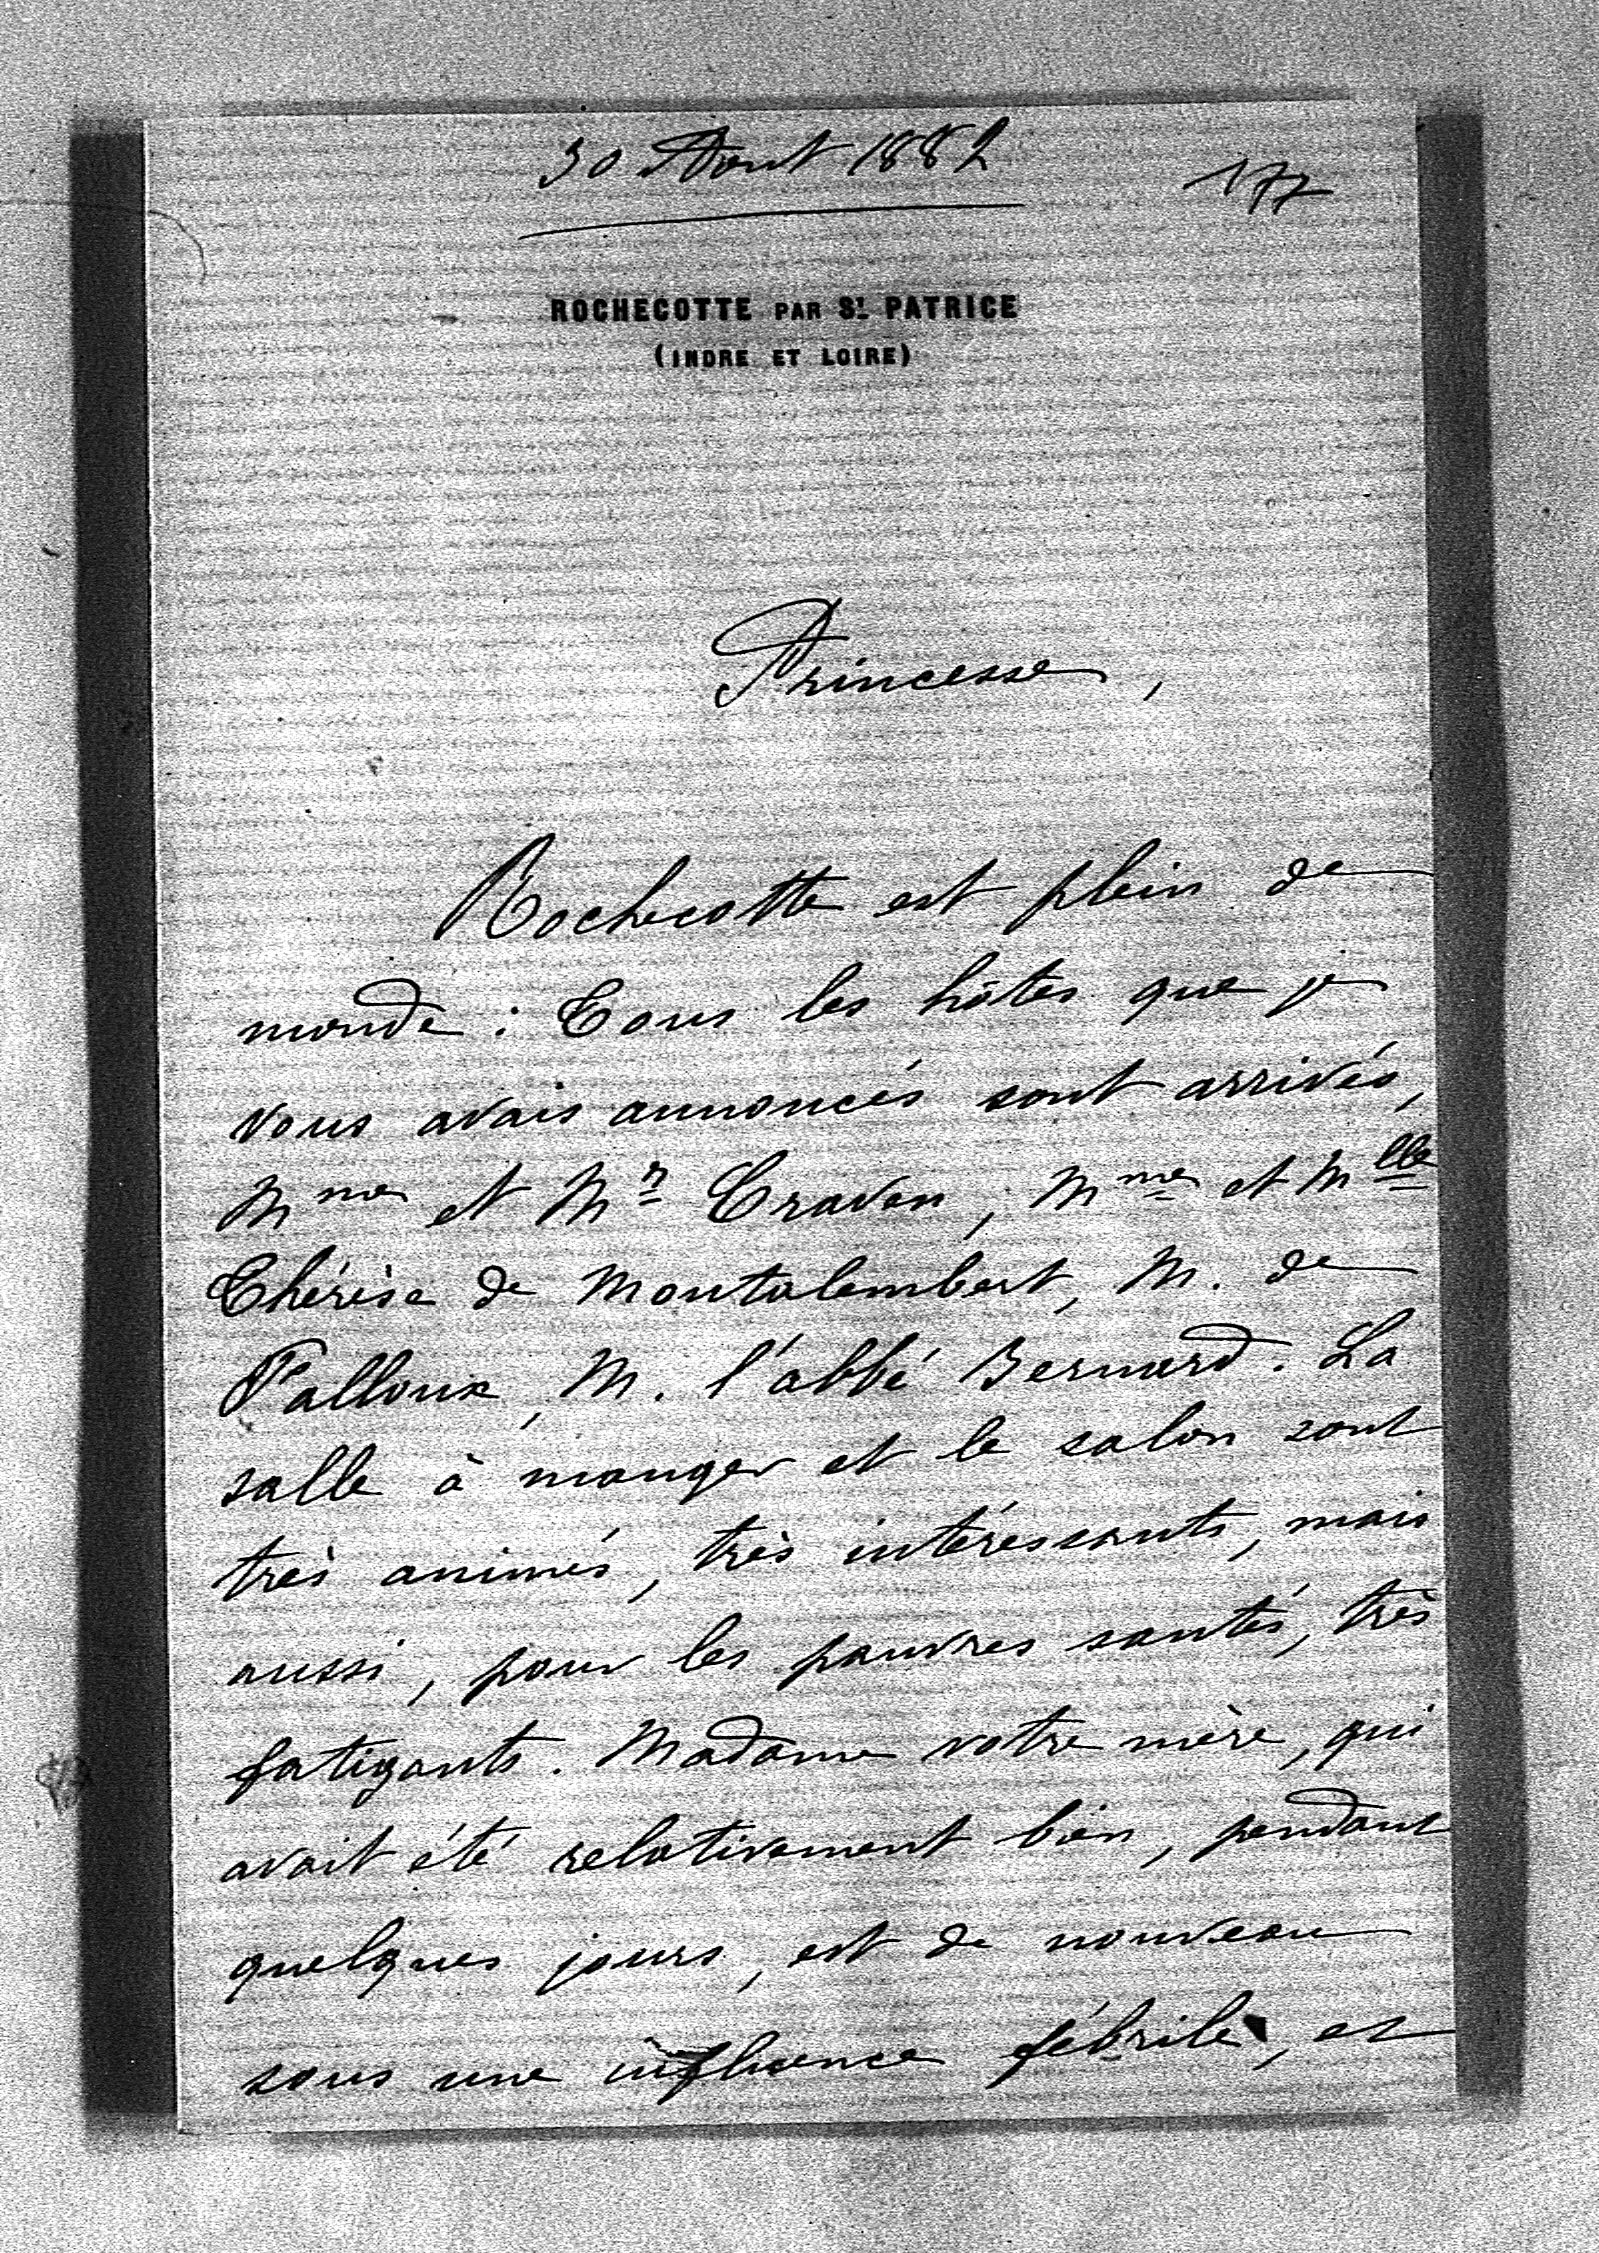 30 Aout 1882
177
ROCHECOTTE PAR St PATRICE
(INDRE ET LOIRE)
Princesse,
Rochecotte est plein de
monde : Tous les hôtes que je
vous avais annoncés sont arrivés,
Mme et Mr Craven, Mme et Mlle
Thérèse de Montalembert, M. de
Falloux, M. l'abbé Bernard. La
salle à manger et le salon sont
très animés, très intéressants, mais
aussi, pour les pauvres santés, très
fatigants. Madame votre mère, qui
avait été relativement bien, pendant
quelques jours, est de nouveau
sous une influence fébrile, et